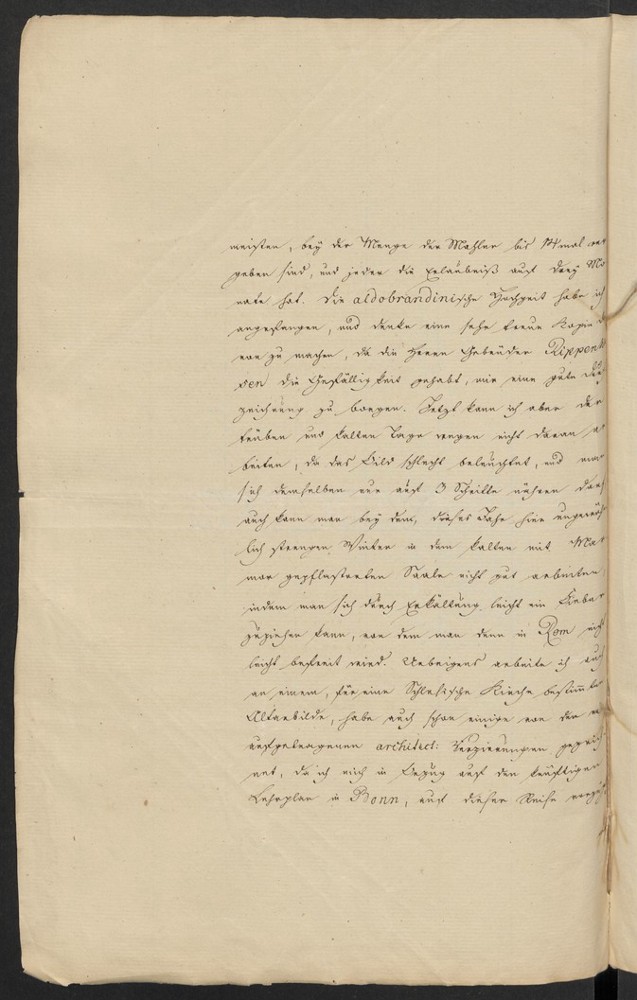 meisten, bey der Menge der Mahler bis 14 mal ver
geben sind, und jeder die Erlaubniß auf drey Mo
nate hat. Die aldobrandinische Hochzeit habe ich
angefangen, und denke eine sehr treue Kopie
von zu machen, da die Herrn Gebrüder Riepen
sen die Gefälligkeit gehabt, mir eine gute Durch
zeichnung zu borgen. Jetzt kann ich aber der
trüben und kalten Tage wegen nicht daran ar
beiten, da das Bild schlecht beleuchtet, und man
sich demselben nur auf 3 Schritte nähern darf
auch kann man bey dem, dieses Jahr hier ungewöhn
lich strengen Winter in dem kalten mit Mar
mor gepflasterten Saale nicht gut arbeiten
indem man sich durch Erkältung leicht ein Fieber
zuziehen kann, von dem man denn in Rom nicht
leicht befreit wird. Uebrigens arbeite ich auch
an einem, für eine Schlesische Kirche bestimmten
Altarbilde, habe auch schon einige von den
aufgetragenen architect: Verzierungen gezeich
net, da ich mich in Bezug auf den künftigen
Lehrplan in Bonn, auf dieser Reise